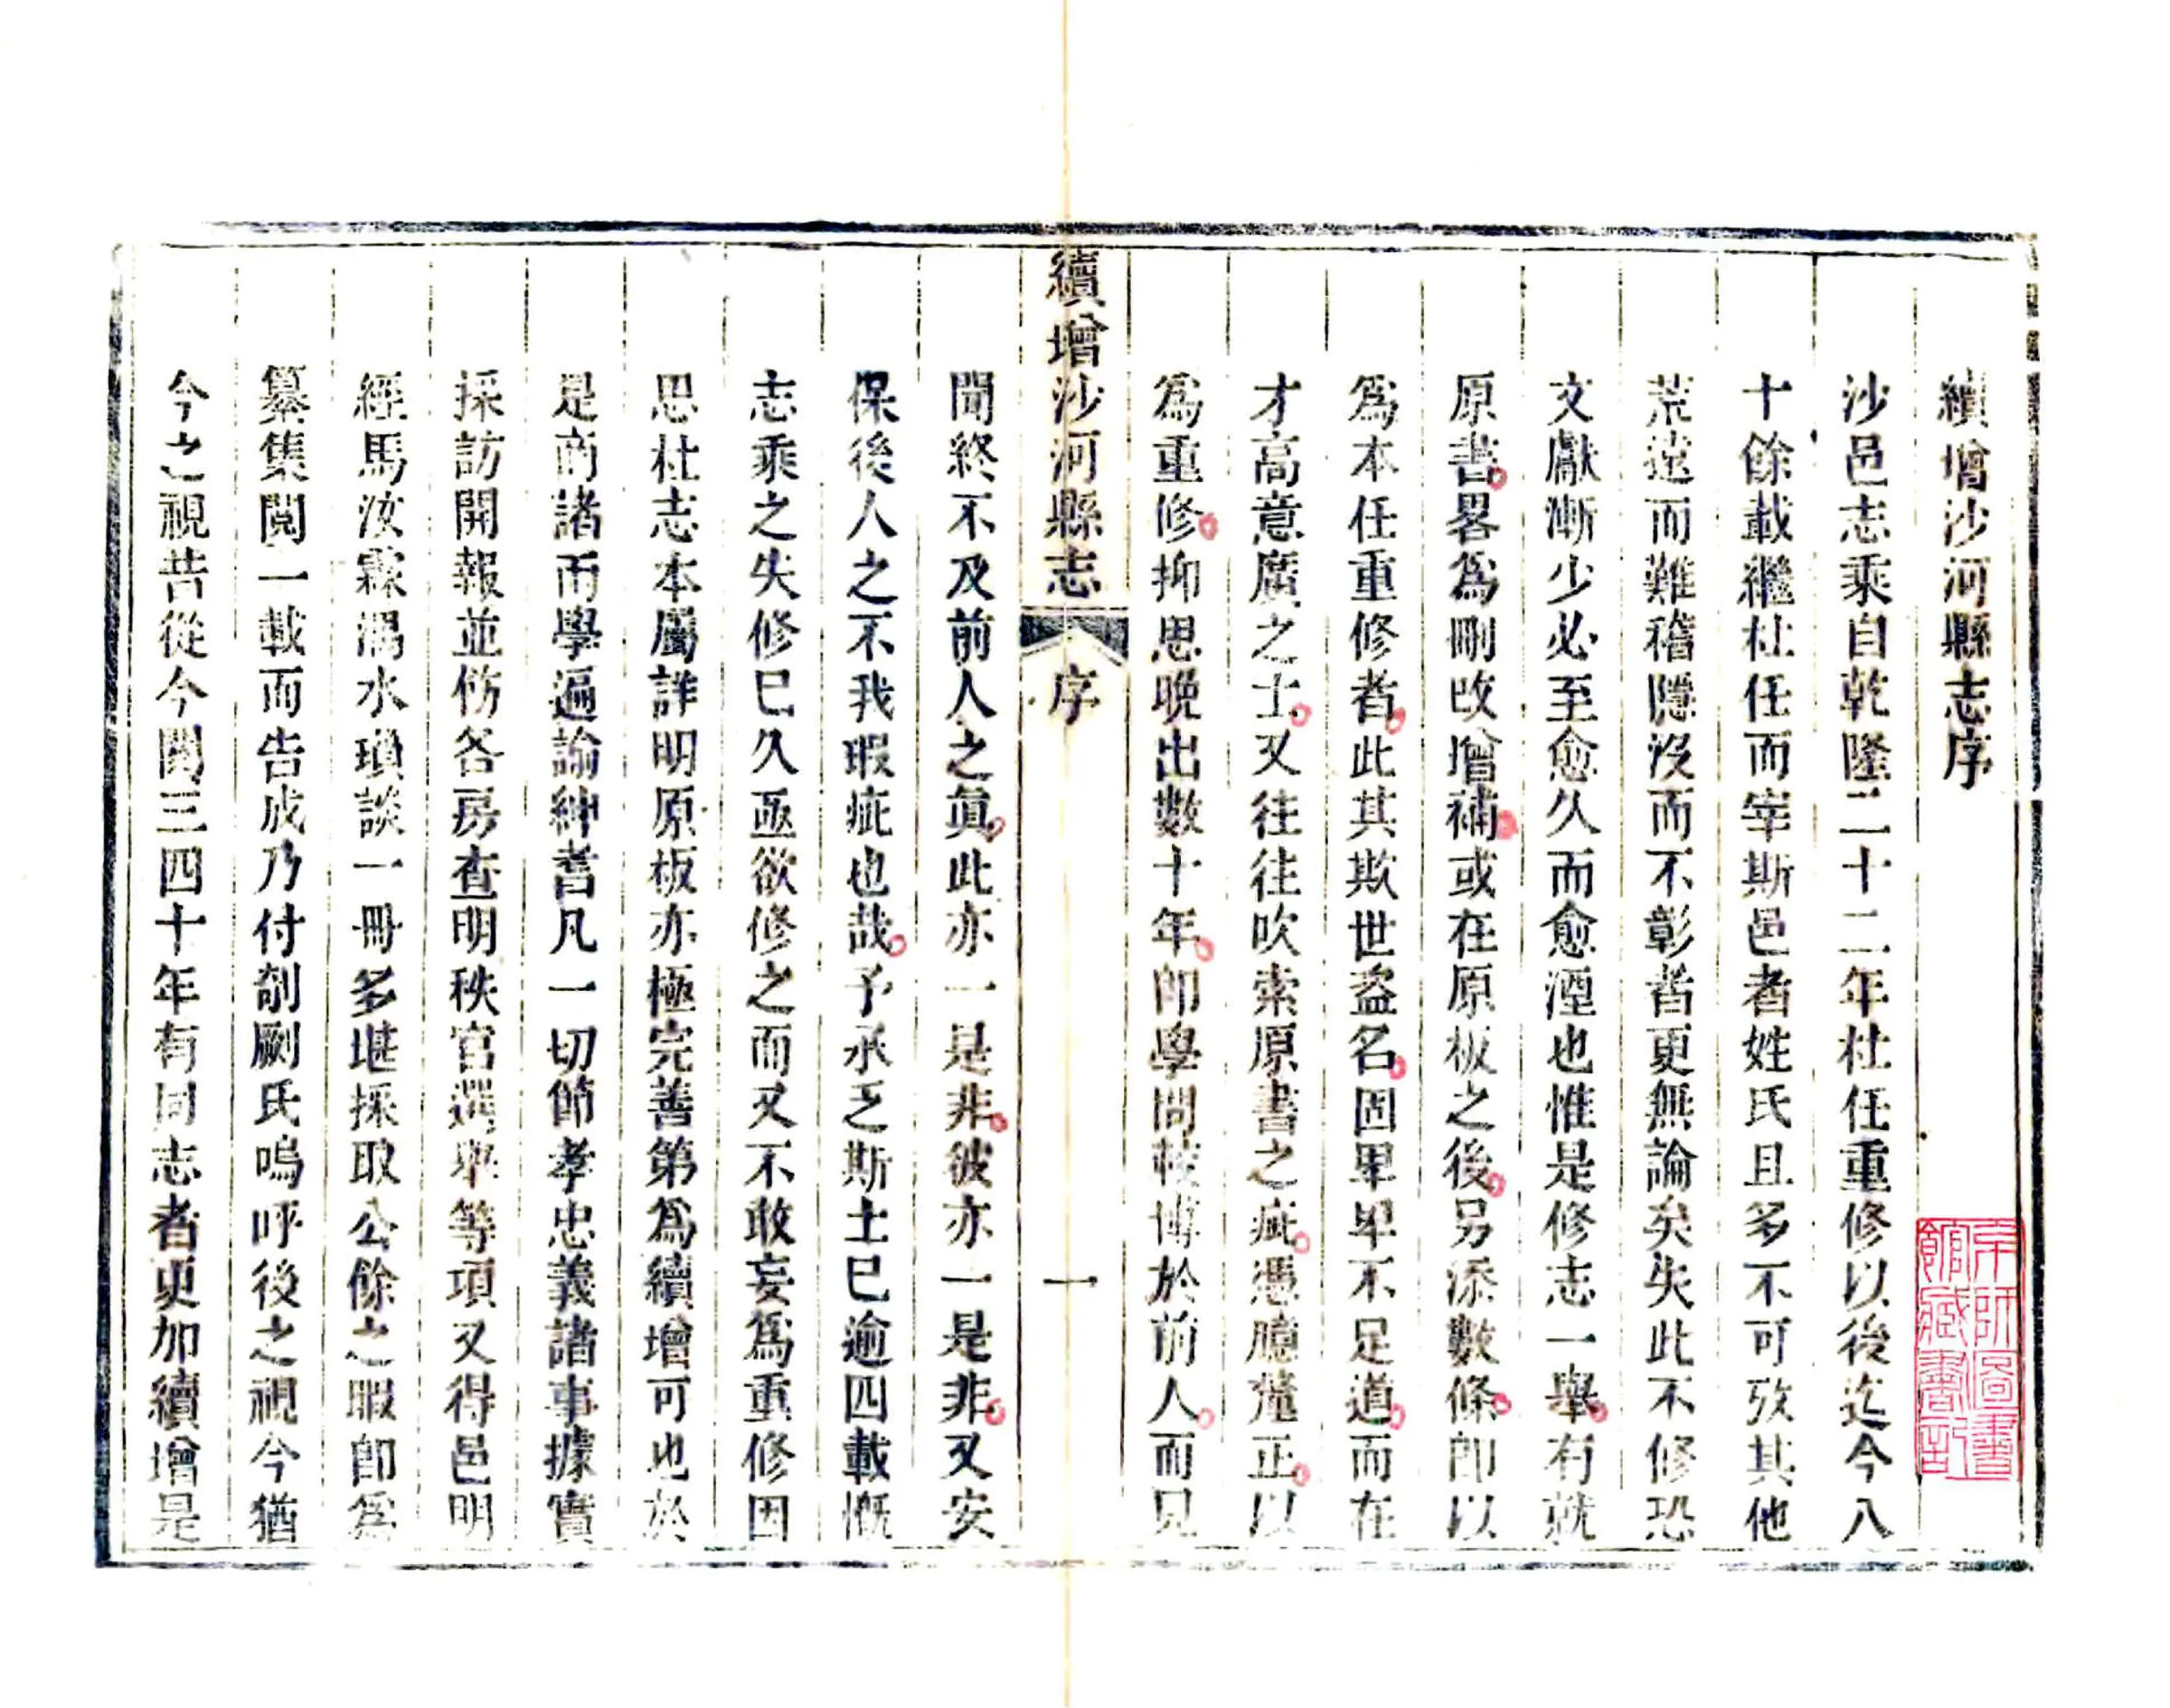 續增沙河縣志序
沙邑志乘自乾隆二十二年杜任重修以後迄今八
十餘載繼杜任而宰斯邑者姓氏且多不可攷其他
荒遠而難稽隱沒而不彰者更無論矣失此不修恐
文獻漸少必至愈久而愈湮也惟是修志一舉有就
原書畧為刪改增補或在原板之後另添數條卽以
為本任重修者此其欺世盜名固卑卑不足道而在
才高意廣之士又往往吹索原書之疵憑臆釐正以
為重修抑思晚出數十年卽學問較博於前人而見
續增沙河縣志
序
一
聞終不及前人之眞此亦一是非彼亦一是非又安
保後人之不我瑕疵也哉予承乏斯土已逾四載慨
志乘之失修已久亟欲修之而又不敢妄為重修因
思杜志本屬詳明原板亦極完善第為續增可也於
是商諸兩學遍諭紳耆凡一切節孝忠義諸事據實
採訪開報並飭各房查明秩官選舉等項又得邑明
經馬汝霖湡水瑣談一冊多堪採取公餘之暇卽為
纂集閱一載而告成乃付剞劂氏嗚呼後之視今猶
今之視昔從今閱三四十年有同志者更加續增是
京師圖書
館藏書記